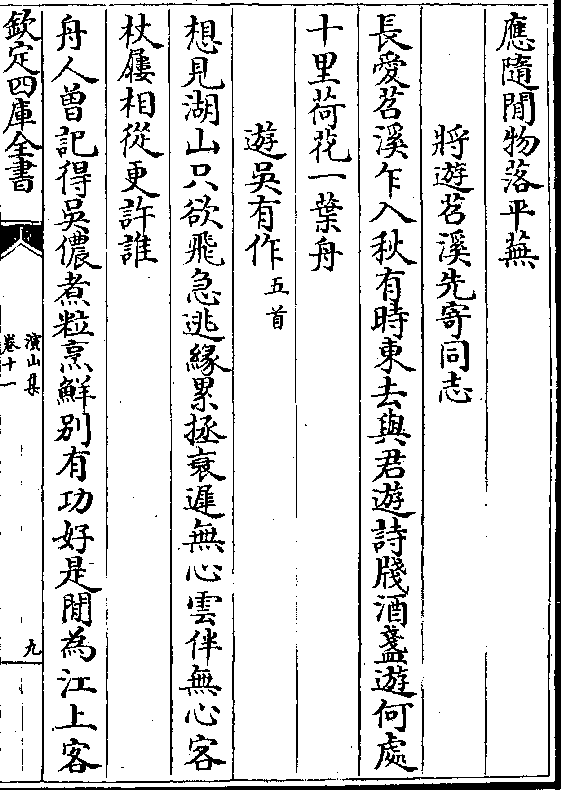 應隨閒物落平蕪
將遊苕溪先寄同志
長愛苕溪乍入秋有時東去與君遊詩牋酒盞遊何處
十里荷花一葉舟
遊吳有作五首
想見湖山只欲飛急逃緣累拯衰遲無心雲伴無心客
杖屨相從更許誰
舟人曾記得吳儂煮粒烹鮮別有功好是閒為江上客
欽定四庫全書
演山集
卷十一
九